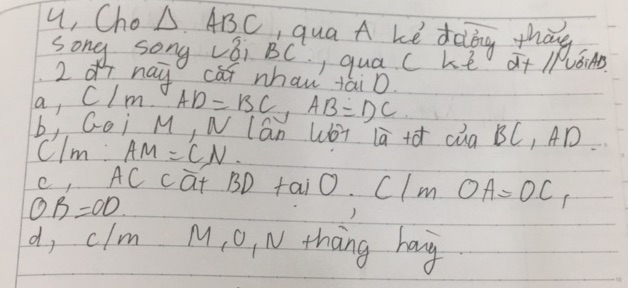 4, Cho Δ ABC, qua A kẻ đường thẳng
song song với BC, qua C kẻ đt // với AB.
2 đt này cắt nhau tại D.
a, C/m AD = BC, AB = DC.
b, Gọi M, N lần lượt là tđ của BC, AD.
C/m: AM = CN.
c, AC cắt BD tại O. C/m OA = OC,
OB = OD.
d, c/m M, O, N thẳng hàng